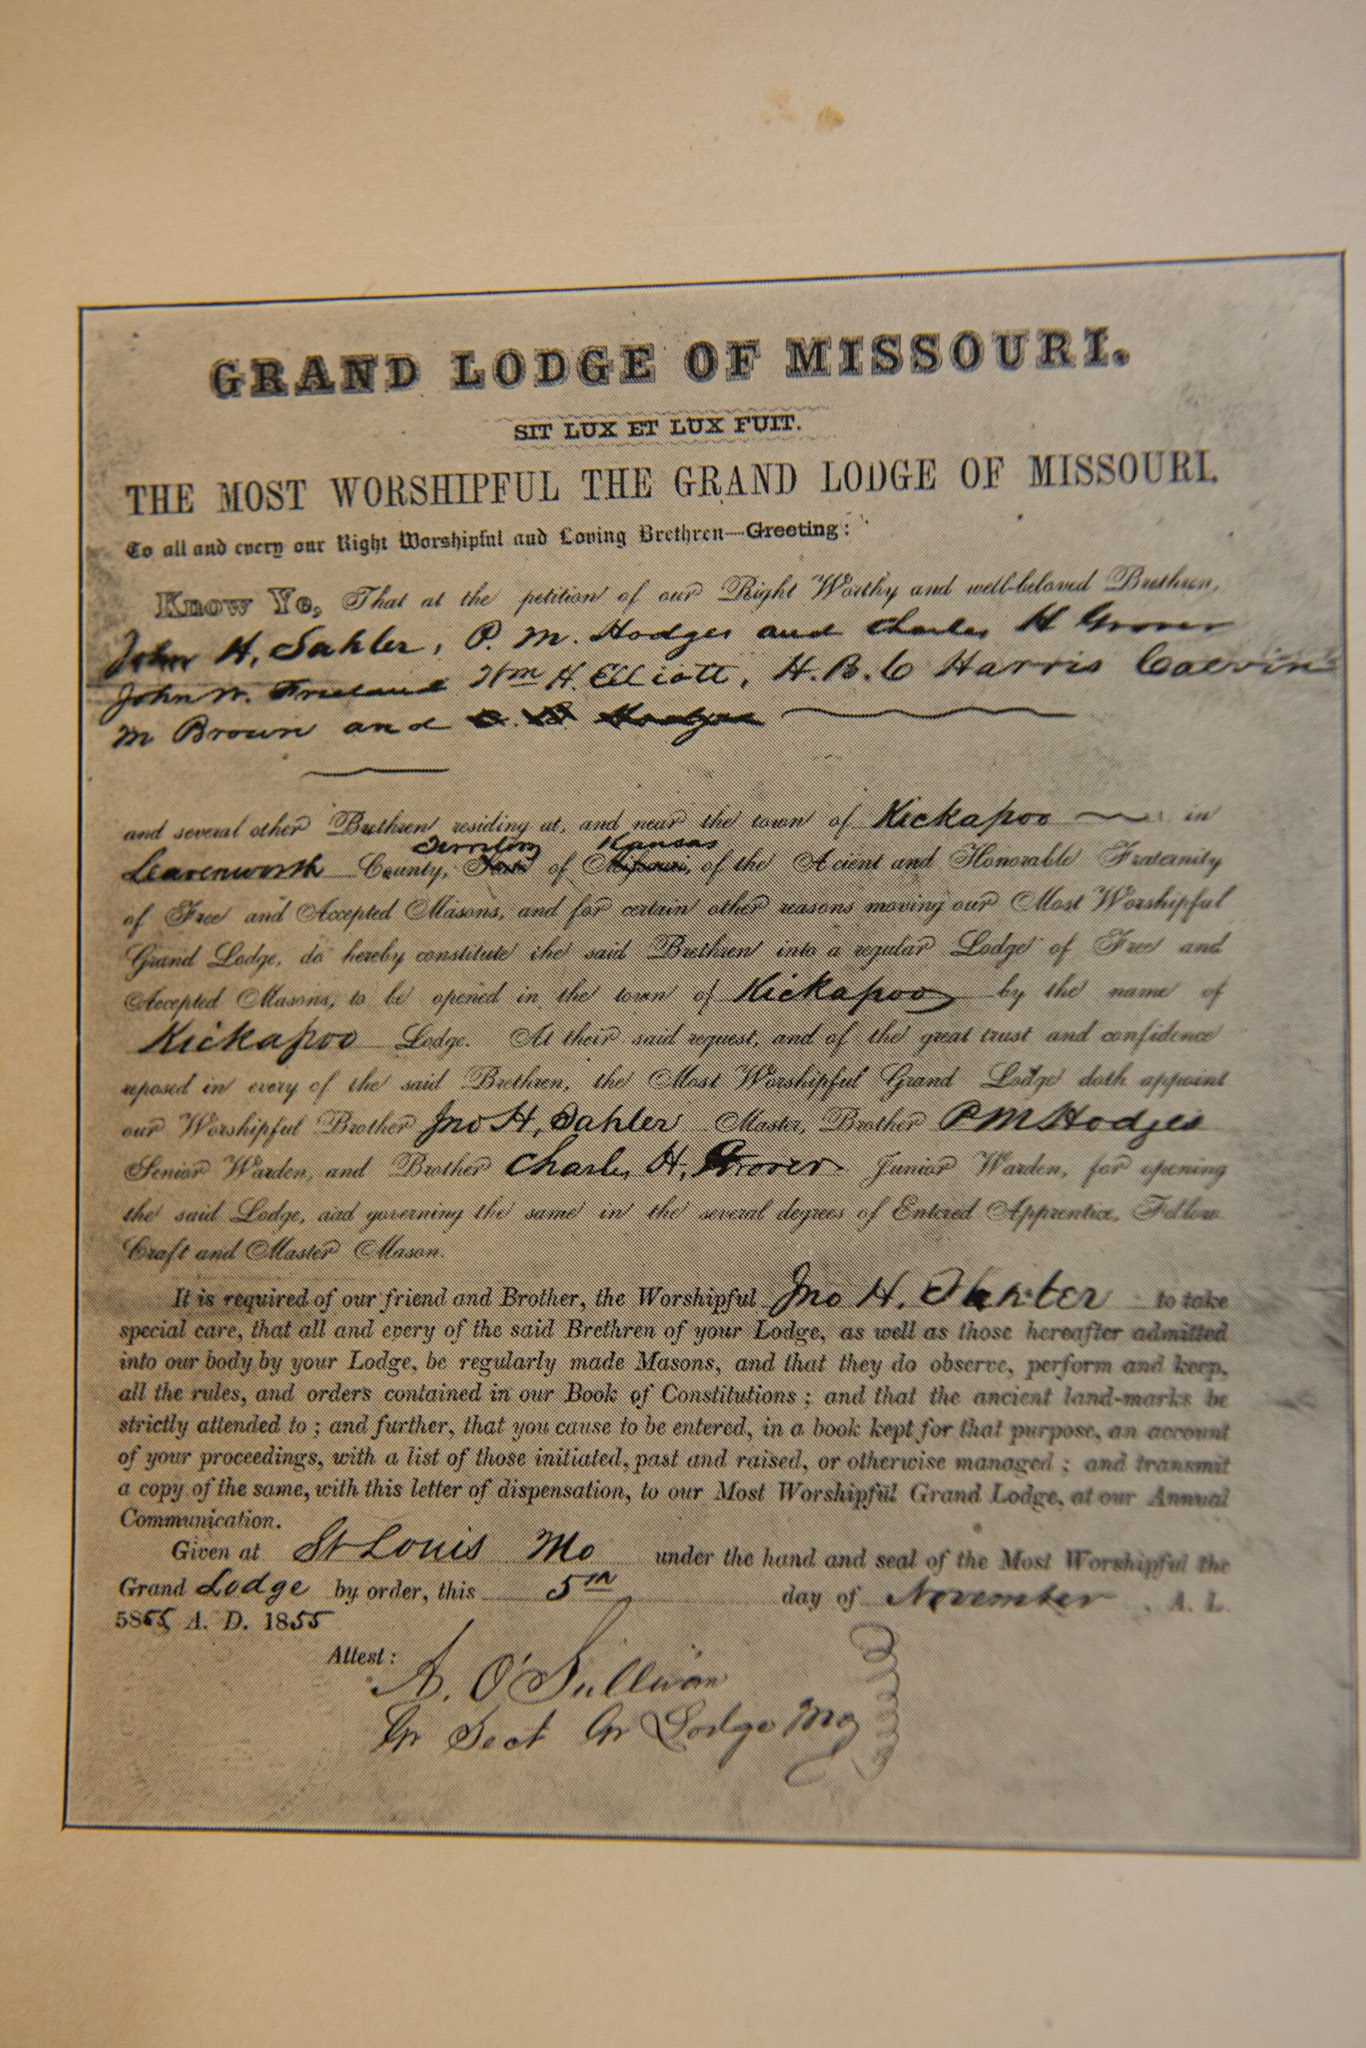 GRAND LODGE OF MISSOURI.
SIT LUX ET LUX FUIT.
THE MOST WORSHIPFUL THE GRAND LODGE OF MISSOURI.
To all and every our Right Worshipful and Loving Brethren—Greeting:
Know Ye, That at the petition of our Right Worthy and well-beloved Brethren,
John H. Sahler, P. M. Hodges and Charles H Grover
John W. Freeland Wm H. Elliott, H. B. C Harris Calvin
M Brown and
and several other Brethren residing at, and near the town of Kickapoo in
Territory Kansas
Leavenworth County, State of Missouri, of the Acient and Honorable Fraternity
of Free and Accepted Masons, and for certain other reasons moving our Most Worshipful
Grand Lodge, do hereby constitute the said Brethren into a regular Lodge of Free and
Accepted Masons, to be opened in the town of Kickapoo by the name of
Kickapoo Lodge. At their said request, and of the great trust and confidence
reposed in every of the said Brethren, the Most Worshipful Grand Lodge doth appoint
our Worshipful Brother Jno H. Sahler Master, Brother P M Hodges
Senior Warden, and Brother Charles H. Grover Junior Warden, for opening
the said Lodge, and governing the same in the several degrees of Entered Apprentice, Fellow
Craft and Master Mason.
It is required of our friend and Brother, the Worshipful Jno H. Sahler to take
special care, that all and every of the said Brethren of your Lodge, as well as those hereafter admitted
into our body by your Lodge, be regularly made Masons, and that they do observe, perform and keep,
all the rules, and orders contained in our Book of Constitutions; and that the ancient land-marks be
strictly attended to; and further, that you cause to be entered, in a book kept for that purpose, an account
of your proceedings, with a list of those initiated, past and raised, or otherwise managed; and transmit
a copy of the same, with this letter of dispensation, to our Most Worshipful Grand Lodge, at our Annual
Communication.
Given at St Louis Mo under the hand and seal of the Most Worshipful the
Grand Lodge by order, this 5th day of November, A. L.
5855 A. D. 1855
Attest:
A. O'Sullivan
Gr Sect Gr Lodge Mo